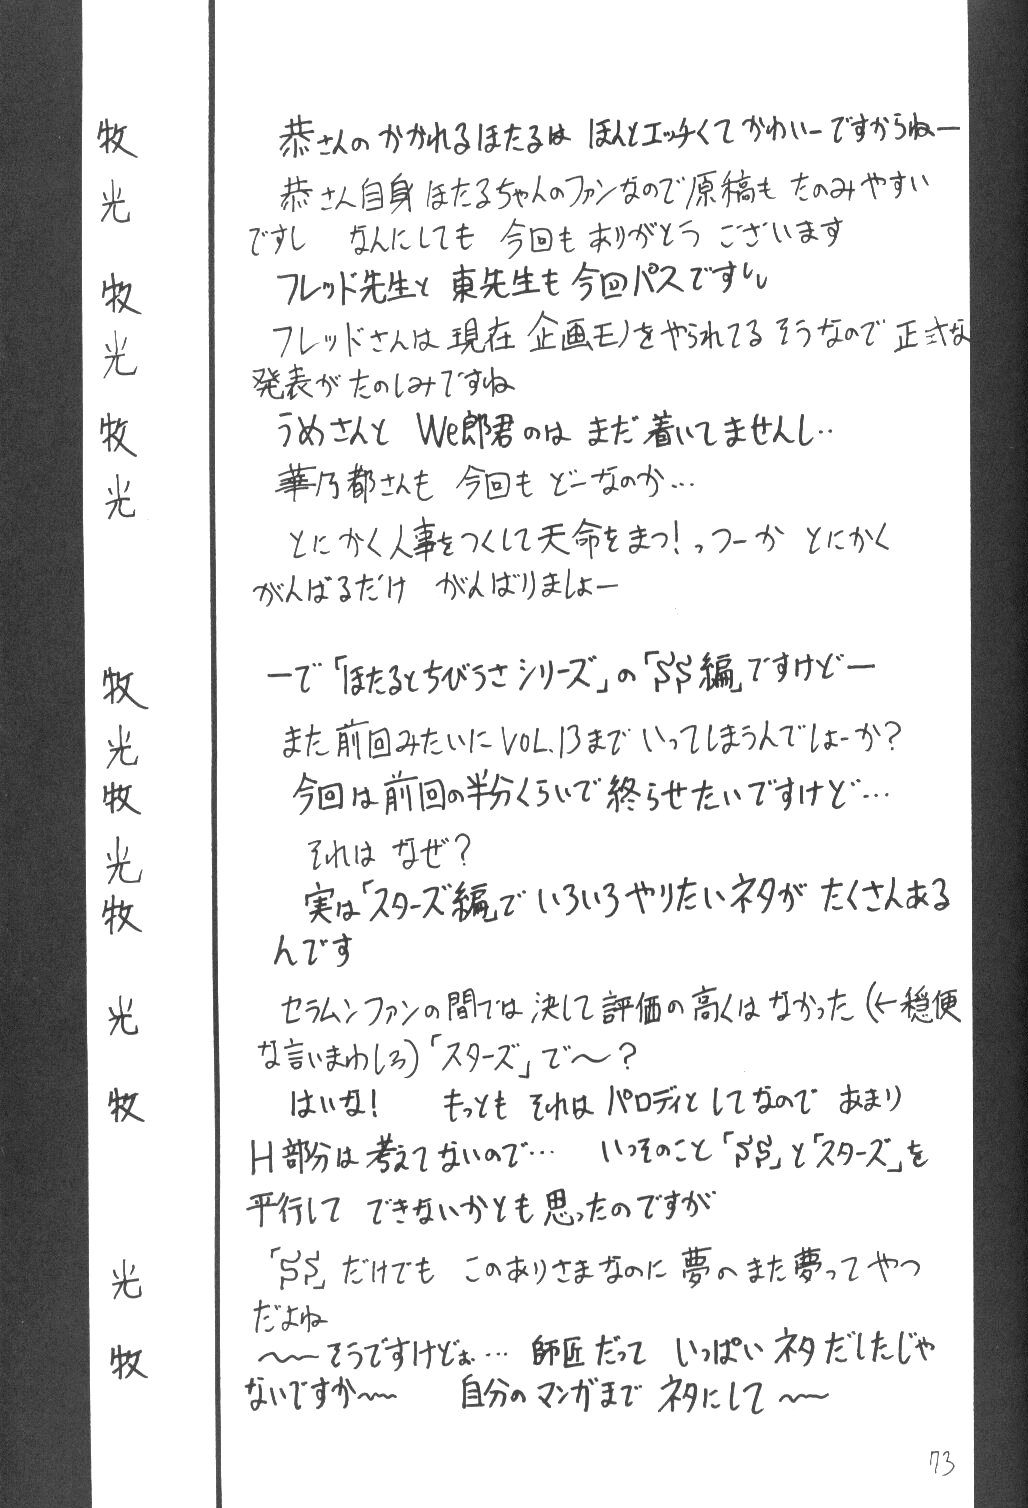 牧 恭さんの かかれるほたるは ほんとエッチくて かわいーですからねー
光 恭さん自身 ほたるちゃんのファンなので原稿も たのみやすい
ですし なんにしても 今回も ありがとう ございます
牧 フレッド先生と 東先生も 今回パスですしし
光 フレッドさんは 現在 企画モノをやられてる そうなので 正式な
発表が たのしみですね
牧 うめさんと We郎君のは まだ 着いてませんし‥
光 華乃都さんも 今回も どーなのか…
とにかく人事をつくして天命をまつ!っつーか とにかく
がんばるだけ がんばりましょー
牧 ーで「ほたるとちびうさシリーズ」の「SS編」ですけどー
光 また前回みたいにVOL.13まで いってしまうんでしょーか?
牧 今回は前回の半分くらいで終らせたいですけど…
光 それは なぜ?
牧 実は「スターズ編」で いろいろやりたいネタが たくさんある
んです
光 セラムンファンの間では 決して評価の高くはなかった(←穏便
な言いまわしろ)「スターズ」で〜?
牧 はいな! もっとも それは パロディとしてなので あまり
H部分は 考えてないので… いっそのこと「SS」と「スターズ」を
平行して できないかとも思ったのですが
光 「SS」だけでも このありさまなのに 夢のまた夢ってやつ
だよね
牧 〜〜そうですけどぉ… 師匠だって いっぱい ネタだしたじゃ
ないですか〜〜 自分のマンガまで ネタにして〜〜
73